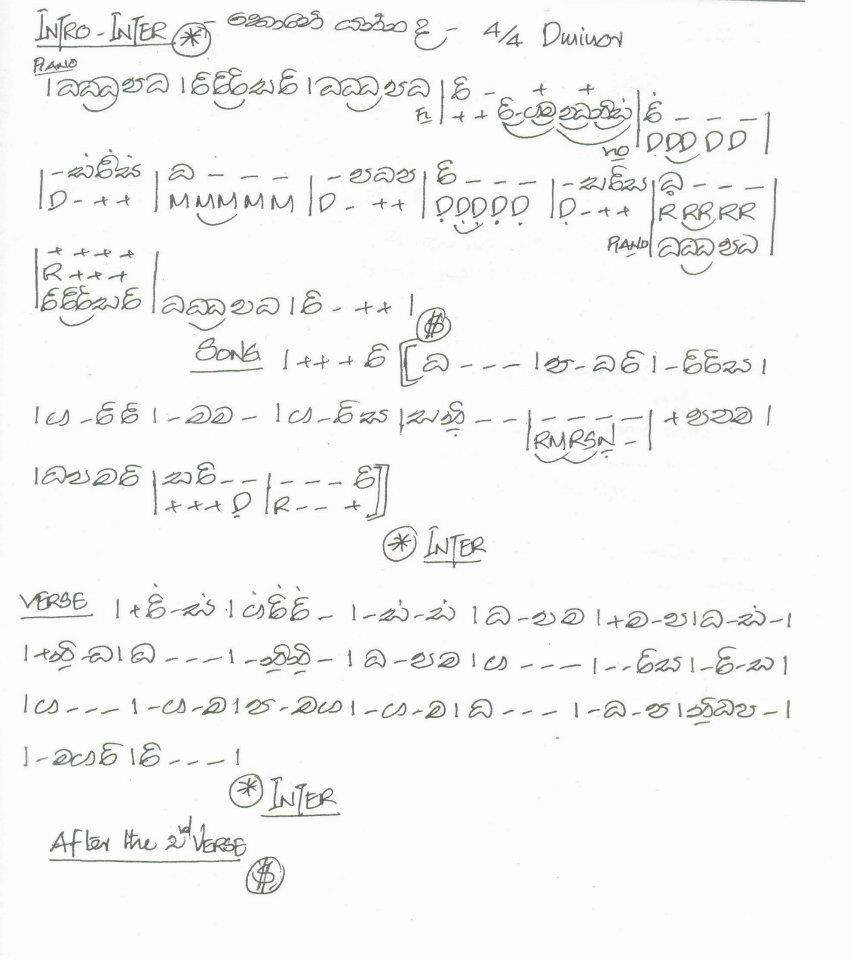 INTRO - INTER * - කොහේ යන්න ද - 4/4 Dminor
PIANO
|ධධධපධ |රිරිරිසරි |ධධධපධ | රි - + +
FL + + රි-ගමපධනිස් | රි - - -
NO DDDDD |
| -සං රිං සං | ධ - - - | - පධප | රි - - - | - සරිස | ධ - - -
| D - + + | MMMMM | D - + + | DDDDD | D - + + | RRRRR |
PIANO | ධධධපධ |
| + + + + |
| R + + + |
| රිරිරිසරි | ධධධපධ | රි - + + |
$
SONG | + + + රි [ ධ - - - | ප - ධරි | - රිරිස |
| ග - රිරි | - මම - | ග - රිස | සනි - - | - - - - - | + පමම |
| RMRSN - |
| ධපමරි | සරි - - | - - - රි ]
| + + + D | R - - + ]
* INTER
VERSE | + රි - ස | ගරිරි - | - ස - ස | ධ - පම | + ම - ප | ධ - ස - |
| + නි - ධ | ධ - - - | - නිනි - | ධ - පම | ග - - - | - - රිස | - රි - ස |
| ග - - - | - ග - ම | ප - මග | - ග - ම | ධ - - - | - ධ - ප | නිධප - |
| - මගරි | රි - - - |
* INTER
After the 2nd VERSE
$